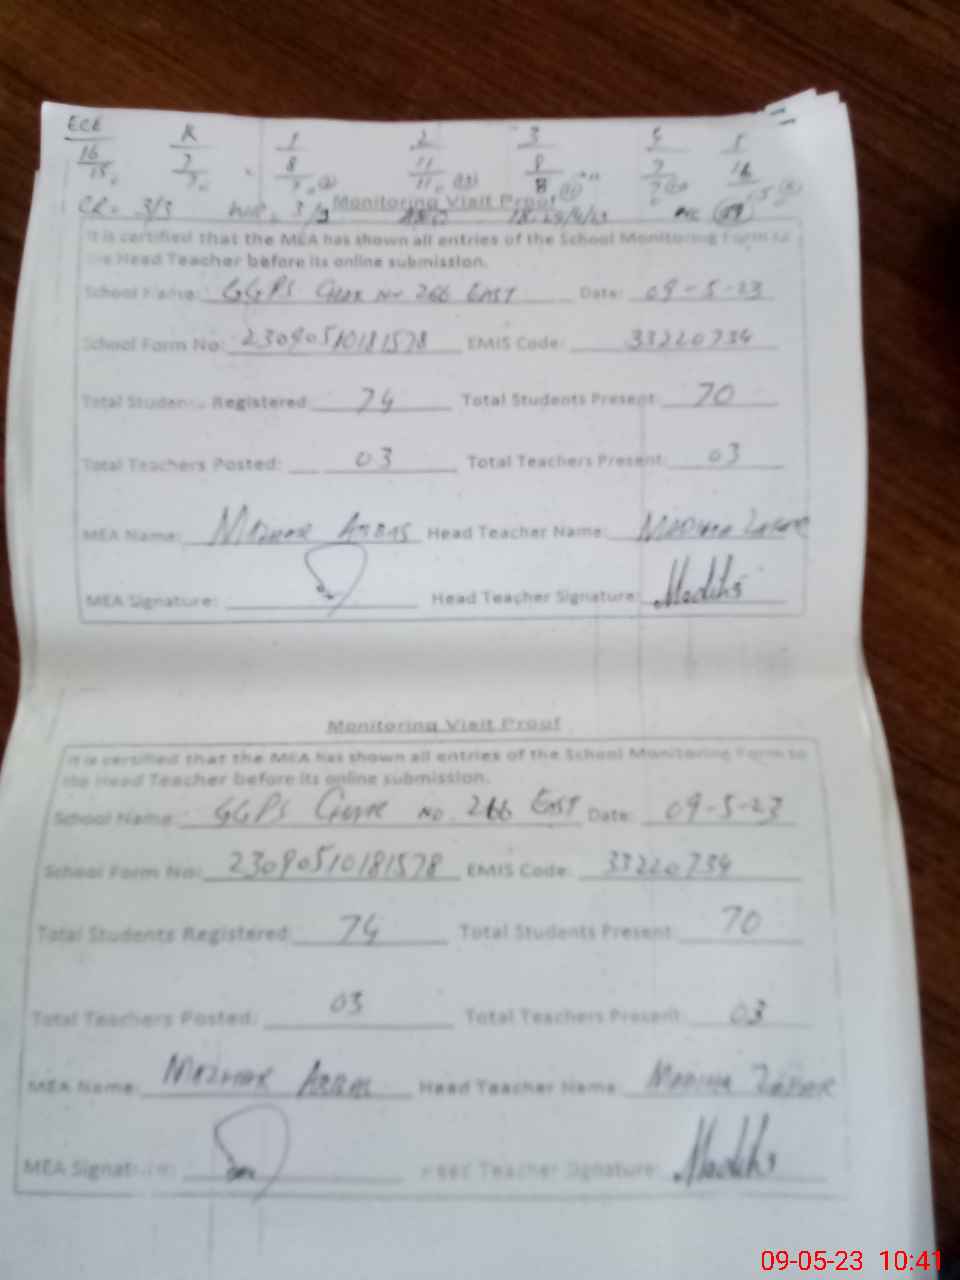 ECE K 1 2 3 4 5
16 7 8 11 8 7 16
15 7 7 11 8 7
CR = 3/3
Monitoring Visit Proof
It is certified that the MEA has shown all entries of the School Monitoring Form to
the Head Teacher before its online submission.
School Name: GGPS Chak No 266 EAST Date: 09-5-23
School Form No: 23090510181578 EMIS Code: 33220734
Total Students Registered: 74 Total Students Present: 70
Total Teachers Posted: 03 Total Teachers Present: 03
MEA Name: MAZHAR ABBAS Head Teacher Name: MADIHA
MEA Signature: Head Teacher Signature: Madiha
Monitoring Visit Proof
It is certified that the MEA has shown all entries of the School Monitoring Form to
the Head Teacher before its online submission.
School Name: GGPS CHAK NO. 266 EAST Date: 09-5-23
School Form No: 23090510181578 EMIS Code: 33220734
Total Students Registered: 74 Total Students Present: 70
Total Teachers Posted: 03 Total Teachers Present: 03
MEA Name: MAZHAR ABBAS Head Teacher Name: MADIHA
MEA Signature: Head Teacher Signature: Madiha
09-05-23 10:41